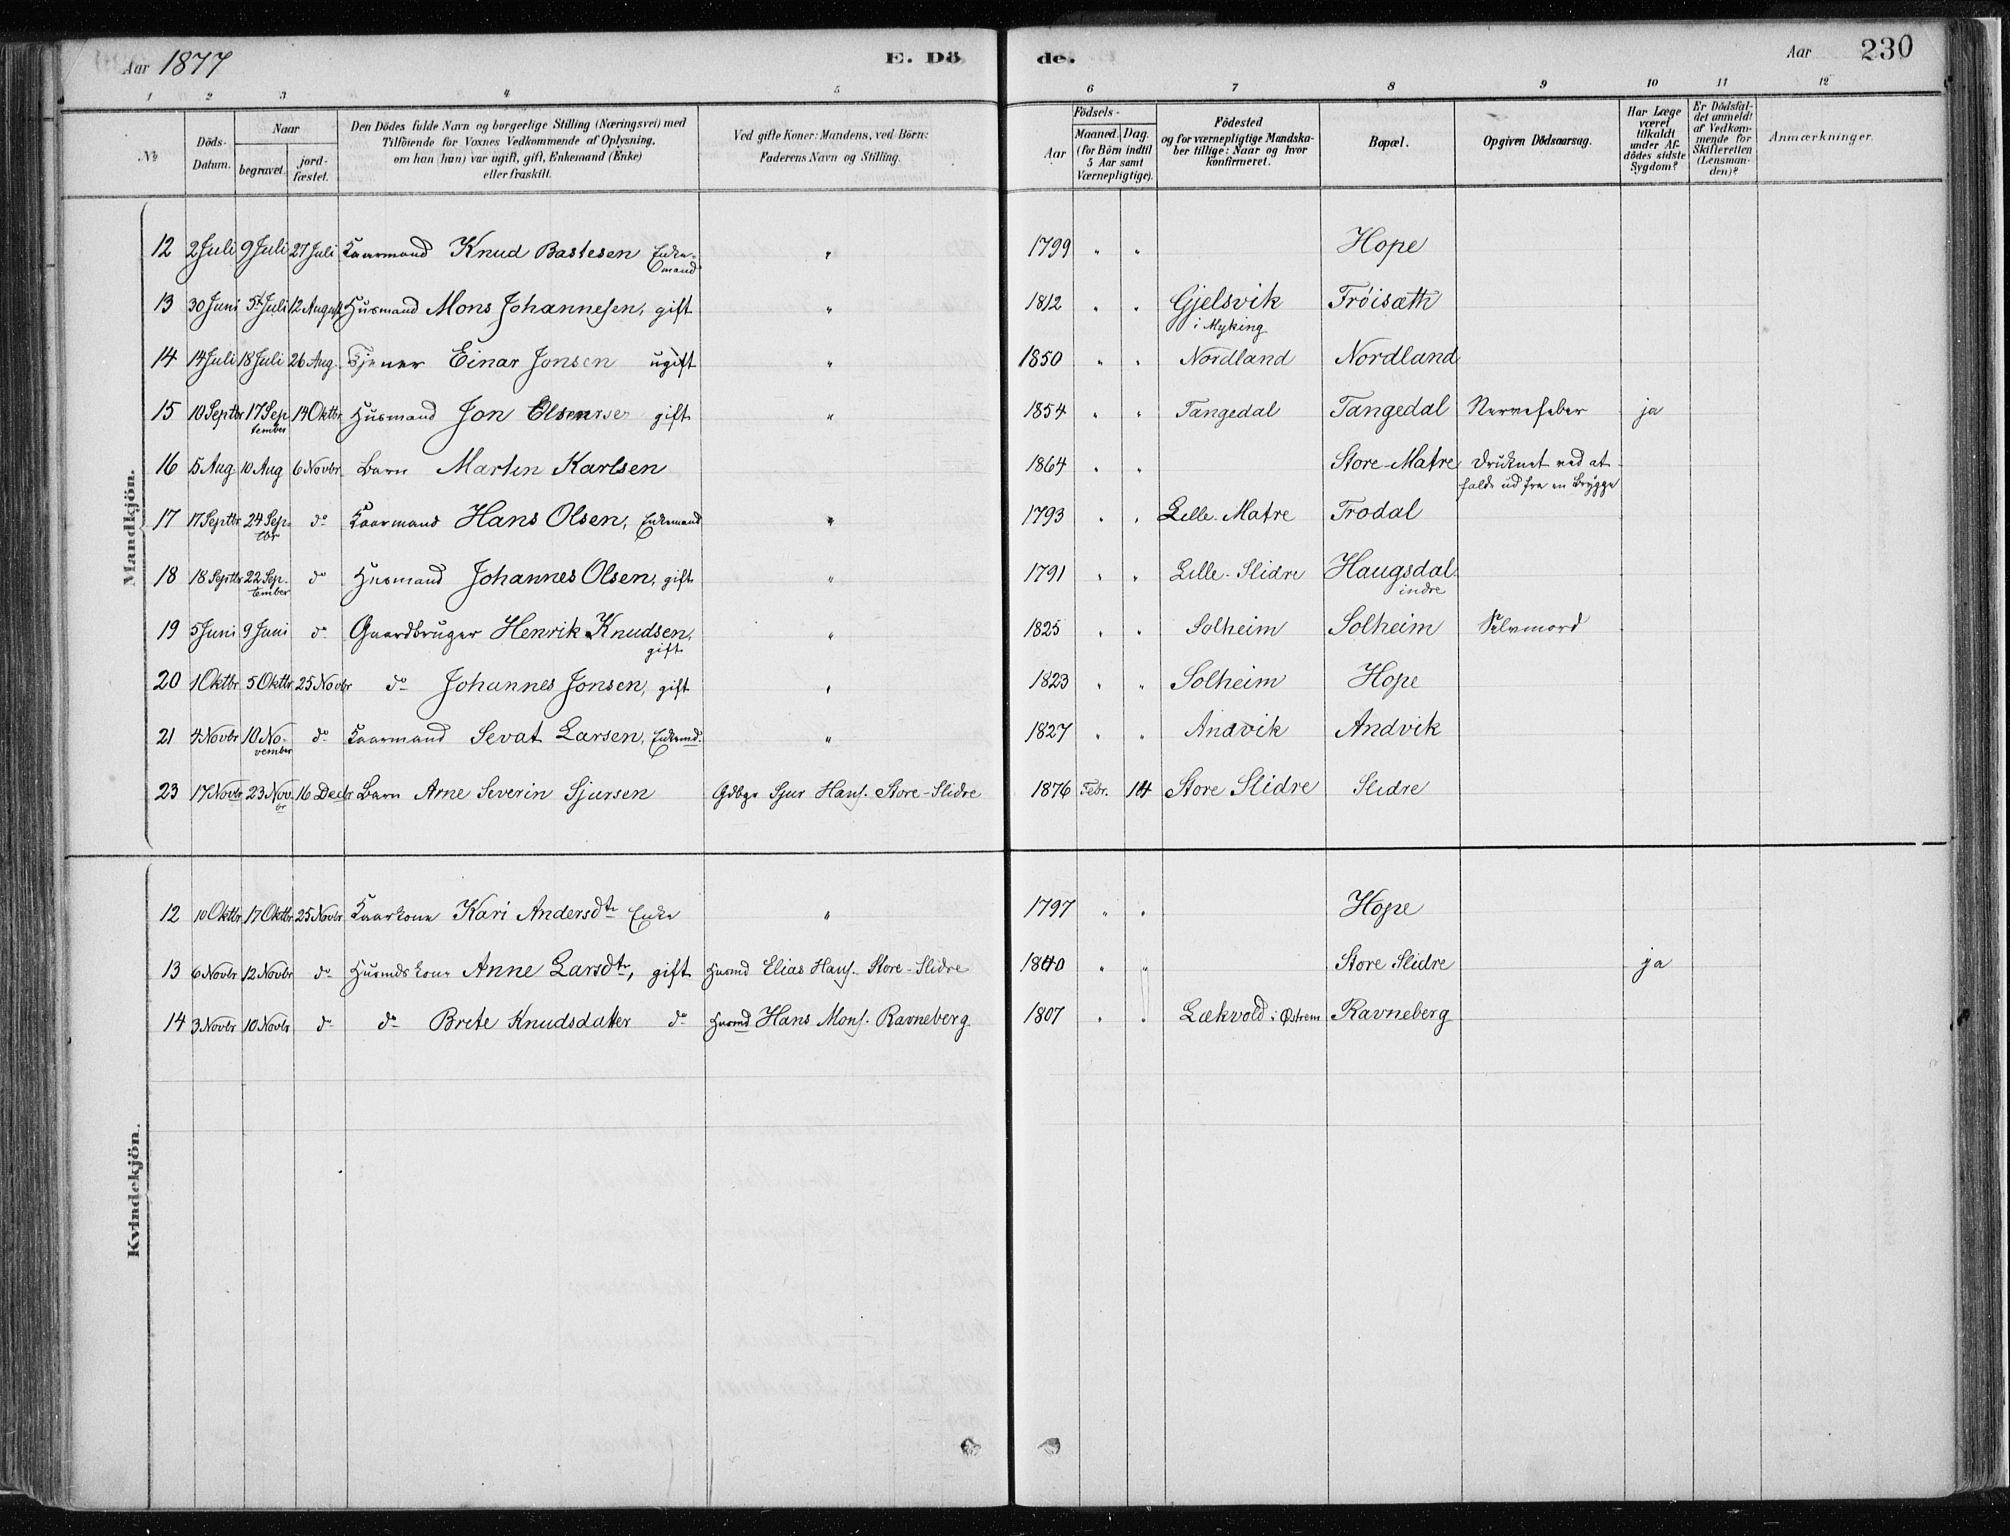 Aar 1877
E. Dö de.
Aar 230
1 2 3 4 5 6 7 8 9 10 11 12
No
Döds-Datum.
Naar begravet.
jordfæstet.
Den Dödes fulde Navn og borgerlige Stilling (Næringsvei) med Tilföiende for Voxnes Vedkommende af Oplysning, om han (hun) var ugift, gift, Enkemand (Enke) eller fraskilt.
Ved gifte Koner: Mandens, ved Börn: Faderens Navn og Stilling.
Födsels-
Aar
Maaned. Dag. (for Börn indtil 5 Aar samt Værnepligtige).
Födested og for værnepligtige Mandskaber tillige: Naar og hvor konfirmeret.
Bopæl.
Opgiven Dödsaarsag.
Har Læge været tilkaldt under Afdödes sidste Sygdom?
Er Dödsfaldet anmeldt af Vedkommende for Skifteretten (Lensmanden)?
Anmærkninger.
Mandkjön.
12 2 Juli 9 Juli 27 Juli Kaarmand Knud Bastesen Enkemand " 1799 " " Hope
13 30 Juni 5 Juli 12 August Husmand Mons Johannesen, gift " 1812 " " Gjelsvik i Myking Trøisæth
14 14 Juli 18 Juli 26 Aug. Tjener Einar Jonsen ugift " 1850 " " Nordland Nordland
15 10 Septbr 17 September 14 Oktbr Husmand Jon Olsen gift " 1854 " " Tangedal Tangedal Nervefeber ja
16 5 Aug 10 Aug 6 Novbr Barn Martin Karlsen 1864 " " Store-Matre Druknet ved at falde ud fra en Brygge
17 17 Septbr 24 Septbr do Kaarmand Hans Olsen, Enkemand " 1793 " " Lille-Matre Trodal
18 18 Septbr 22 September do Husmand Johannes Olsen, gift " 1791 " " Lille-Slidre Haugsdal indre
19 5 Juni 9 Juni do Gaardbruger Henrik Knudsen, gift " 1825 " " Solheim Solheim Selvmord
20 1 Oktbr 5 Oktbr 25 Novbr do Johannes Jonsen, gift " 1823 " " Solheim Hope
21 4 Novbr 10 November do Kaarmand Sevat Larsen, Enkemd. " 1827 " " Andvik Andvik
23 17 Novbr 23 Novbr 16 Decbr Barn Arne Severin Sjursen Gdbgr Sjur Hans. Store-Slidre 1876 Febr. 14 Store Slidre Slidre
Kvindekjön.
12 10 Oktbr 17 Oktbr 25 Novbr Kaarkone Kari Andersdtr Enke " 1797 " " Hope
13 6 Novbr 12 Novbr do Husmdskone Anne Larsdtr, gift Husmd Elias Hans. Store-Slidre 1840 " " Store Slidre ja
14 3 Novbr 10 Novbr do do Brete Knudsdatter do Husmd Hans Mons. Ravneberg 1807 " " Lækvold i Østrem Ravneberg